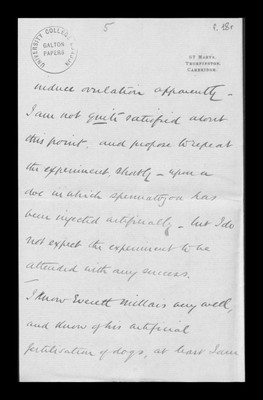 UNIVERSITY COLLEGE LONDON
GALTON PAPERS
5
ST MARYS,
TRUMPINGTON,
CAMBRIDGE.
induce ovulation apparently —
I am not quite satisfied about
this point, and propose to repeat
the experiment shortly — upon a
doe in which spermatozoa has
been injected artificially — but I do
not expect the experiment to be
attended with any success.
I know Everett Millais very well,
and know of his artificial
fertilisation of dogs, at least I am